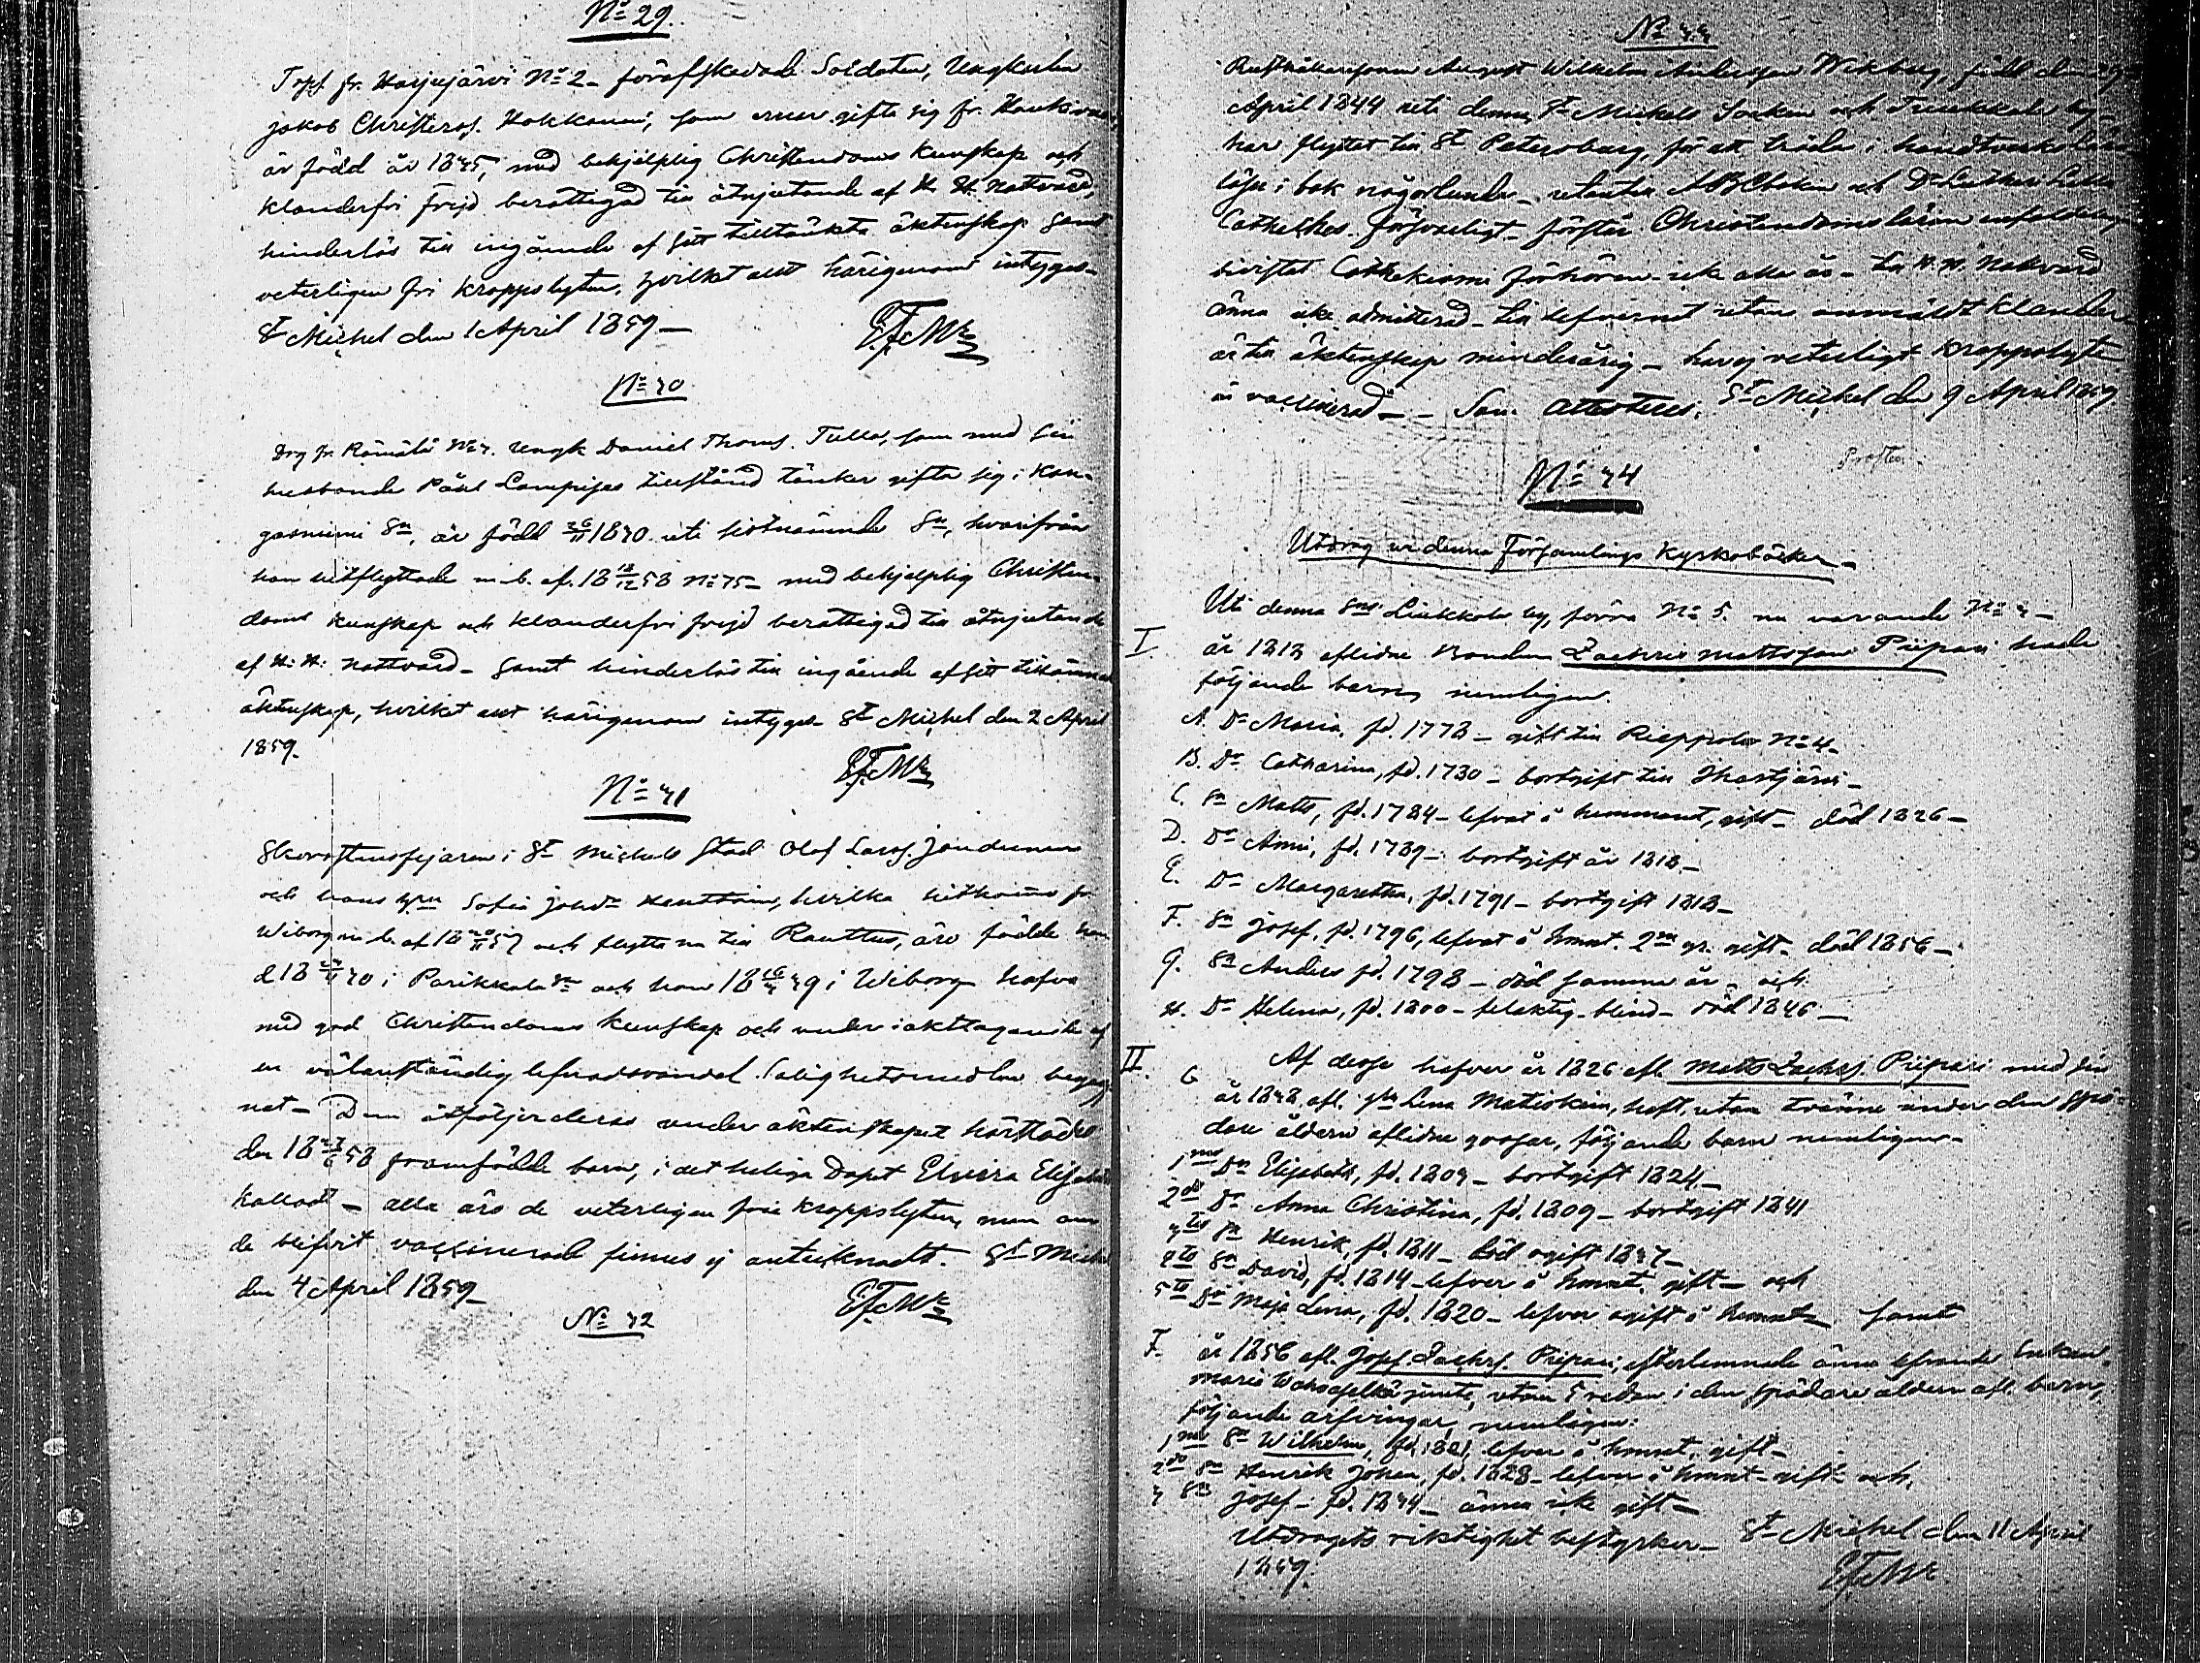 No 29.
Torp. fr. Harjujärvi No 2 - förafskedade Soldaten, Ungkarlen
Jakob Christers. Kokkonen, som ärnar gifta sig fr. Hauki
är född år 1835, med behjelplig Christendoms kunskap och
klanderfri frejd berättigad till åtnjutande af H. H. Nattvard,
hinderlös till ingående af sitt tilltänkta äktenskap samt
veterligen fri kroppslyten, hvilket allt härigenom intygas -
St Michel den 1 April 1859 -
No 30
Drg fr. No 3. Ungk Daniel Thoms. Tulla, som med sin
husbonde Påhl Lampises tillstånd tänker gifta sig i Kan-
gasniemi Sn, är född 26/11 1830 uti sistnämnde Sn, hvarifrån
han hitflyttade m. b. af. 18 18/12 58 No 75 - med behjelplig Christen-
doms kunskap och klanderfri frejd berättigad till åtnjutande
af H. H. Nattvard - samt hinderlös till ingående af sitt
äktenskap, hvilket allt härigenom intygas St Michel den 2 April
1859.
No 31
i St Michels Stad Olof Lars.
och hans hru Sofia Johsdr hvilka hitkommo fr
Wiborg m. b. af 18 57 och flytta nu till Rauttus, äro födde han
d 18 30 i Parikkala Sn och hon 18 39 i Wiborg hafva
med god Christendoms kunskap och under iakttagande af
en välanständig lefnadsvandel Salighetsmedlen begag-
nat - Dem åtföljer deras under äktenskapet härstädes
den 18 58 framfödde barn, i det heliga Dopet Elvira Elisabet
kalladt - alla äro de veterligen frie kroppslyten, men om
de blifvit vaccinerade finnes ej antecknadt. St Michel
den 4 April 1859 -
No 32
No 33
August Wilhelm Andersson Wikberg, född den
April 1844 uti denna St Michels Socken och by -
har flyttat till St Petersburg, för att träda i handtverks
läser i bok någorlunda - utantill ABCboken och Dr Luthers Lilla
Catheches försvarligt - förstår Christendomsläran enfaldeligen
bivistat Cathekismi förhören icke alla år - till H. H. Nattvard
ännu icke admitterad - till lefvernet utan anmäldt klander
är till äktenskap minderårig - har ej veterligt kroppslyte
är vaccinerad - - Som attesteras. St Michel den 9 April 1859
Prosten.
No 34
Utdrag ur denna Församlings Kyrkoböcker -
Uti denna Sns Liukkola by, förra No 5. nu varande No 3 -
I. år 1813 aflidne Bonden Zachris Mattsson Piipari hade
följande barn, nemligen.
A. Dr Maria, fd. 1778 - gift till Rieppola No 4 -
B. Dr Catharina, fd. 1780 - bortgift till Ihastjärvi -
C. Sn Matts, fd. 1784 - lefvat å hemmanet, gift - död 1826 -
D. Dr Anni, fd. 1789 - bortgift år 1818 -
E. Dr Margaretha, fd. 1791 - bortgift 1818 -
F. Sn Josef, fd. 1796, lefvat å hmnt. 2 gr. gift - död 1856 -
G. Sn Anders fd. 1798 - död samma år - och
H. Dr Helena, fd. 1800 - blind - död 1846 -
II. Af desse hafver år 1826 afl. Matts Zachrs. Piipari med sin
C år 1848 afl. hu Lena Matiskain, haft, utan tvänne under den spä-
dare åldern aflidne gossar, följande barn nemligen -
1mo Dn Elisabeth, fd. 1803 - bortgift 1824 -
2do Dr Anna Christina, fd. 1809 - bortgift 1841
3tio Sn Henrik, fd. 1811 - död ogift 1837 -
4to Sn David, fd. 1814 - lefver å hmnt. gift - och
5to Dr Maja Lena, fd. 1820 - lefver ogift å hemmt - samt
F. år 1856 afl. Josef Zachrs. Piipari, efterlemnade ännu lefvande Enkan
Maria jemte, utom 5 redan i den spädare åldern afl. barn,
följande arfvingar, nemligen:
1mo Sn Wilhelm, fd. 1821, lefver å hmnt, gift -
2do Sn Henrik Johan, fd. 1828 - lefver å hmnt - gift - och
3 Sn Josef - fd. 1834 - ännu icke gift -
Utdragets riktighet bestyrker - St Michel den 11 April
1859.